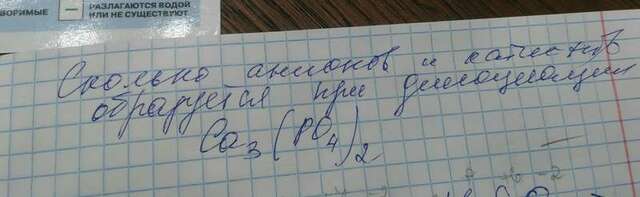 ВОРИМЫЕ — РАЗЛАГАЮТСЯ ВОДОЙ
ИЛИ НЕ СУЩЕСТВУЮТ
Сколько анионов и катионов
образуется при диссоциации
Ca₃(PO₄)₂